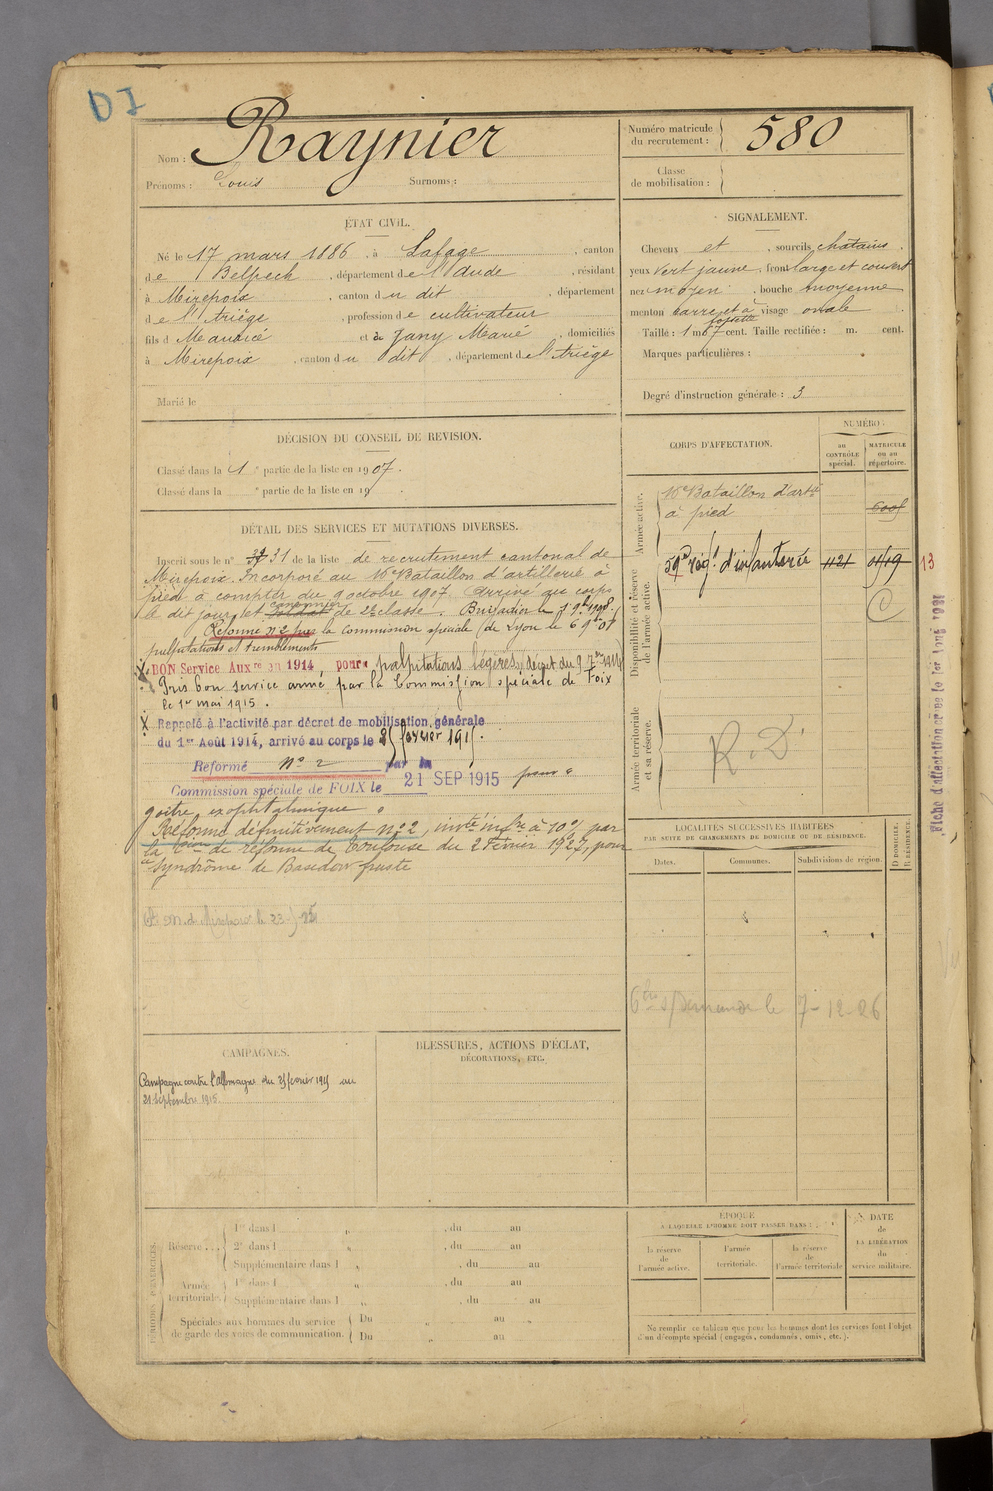 DI
Nom : Raynier
Prénoms : Louis Surnoms :
Numéro matricule du recrutement : 580
Classe de mobilisation :
ÉTAT CIVIL.
Né le 17 mars 1886, à Lafage, canton
de Belpech, département de l'Aude, résidant
à Mirepoix, canton du dit, département
de l'Ariège, profession de cultivateur
fils de Maurice et de Jany Marie, domiciliés
à Mirepoix, canton du dit, département de l'Ariège
Marié le
SIGNALEMENT.
Cheveux et, sourcils chatains.
yeux Vert jaune, front large et couvert
nez moyen, bouche moyenne
menton carré et à fossette visage ovale
Taille : 1 m 67 cent. Taille rectifiée : m. cent.
Marques particulières :
Degré d'instruction générale : 3
DÉCISION DU CONSEIL DE REVISION.
Classé dans la 1e partie de la liste en 1907.
Classé dans la e partie de la liste en 19
CORPS D'AFFECTATION.
NUMÉRO :
au CONTRÔLE spécial.
MATRICULE ou au répertoire.
Armée active.
16e Bataillon d'artie
à pied
Disponibilité et réserve de l'armée active.
59e rég.t d'infanterie 1121 01119 13
C
Armée territoriale et sa réserve.
R. D.
DÉTAIL DES SERVICES ET MUTATIONS DIVERSES.
Inscrit sous le n° 31 de la liste de recrutement cantonal de
Mirepoix. Incorporé au 16e Bataillon d'artillerie à
pied à compter du 9 octobre 1907. Arrivé au corps
le dit jour, et soldat canonnier de 2e classe. Brigadier le
Réformé n° 2 par la Commission spéciale de Lyon le
palpitations et tremblements
X BON Service Auxre en 1914, pour palpitations légères, décret du 9 7bre 1914
Pris bon service armé par la Commission spéciale de Foix
le 1er mai 1915.
X Rappelé à l'activité par décret de mobilisation générale
du 1er Août 1914, arrivé au corps le 25 février 1915.
Réformé n° 2 par la
Commission spéciale de FOIX le 21 SEP 1915 pour
goitre exophtalmique.
Réformé définitivement n° 2, invté infre à 10% par
la Con de réforme de Toulouse du 2 Février 1927, pour
Syndrôme de Basedow fruste
LOCALITÉS SUCCESSIVES HABITÉES
PAR SUITE DE CHANGEMENTS DE DOMICILE OU DE RÉSIDENCE.
Dates. Communes. Subdivisions de région.
D DOMICILE. R RÉSIDENCE.
s/ Demande le 7-12-26
Fiche d'affectation
CAMPAGNES.
Campagne contre l'Allemagne du 25 février 1915 au
21 septembre 1915
BLESSURES, ACTIONS D'ÉCLAT,
DÉCORATIONS, ETC.
PÉRIODES D'EXERCICES.
Réserve...
1re dans l , du au
2e dans l , du au
Supplémentaire dans l , du au
Armée territoriale.
1re dans l , du au
Supplémentaire dans l , du au
Spéciales aux hommes du service de garde des voies de communication.
Du au
Du au
ÉPOQUE
À LAQUELLE L'HOMME DOIT PASSER DANS :
la réserve de l'armée active.
l'armée territoriale.
la réserve de l'armée territoriale
DATE de LA LIBÉRATION du service militaire.
Ne remplir ce tableau que pour les hommes dont les services font l'objet
d'un décompte spécial (engagés, condamnés, omis, etc.).